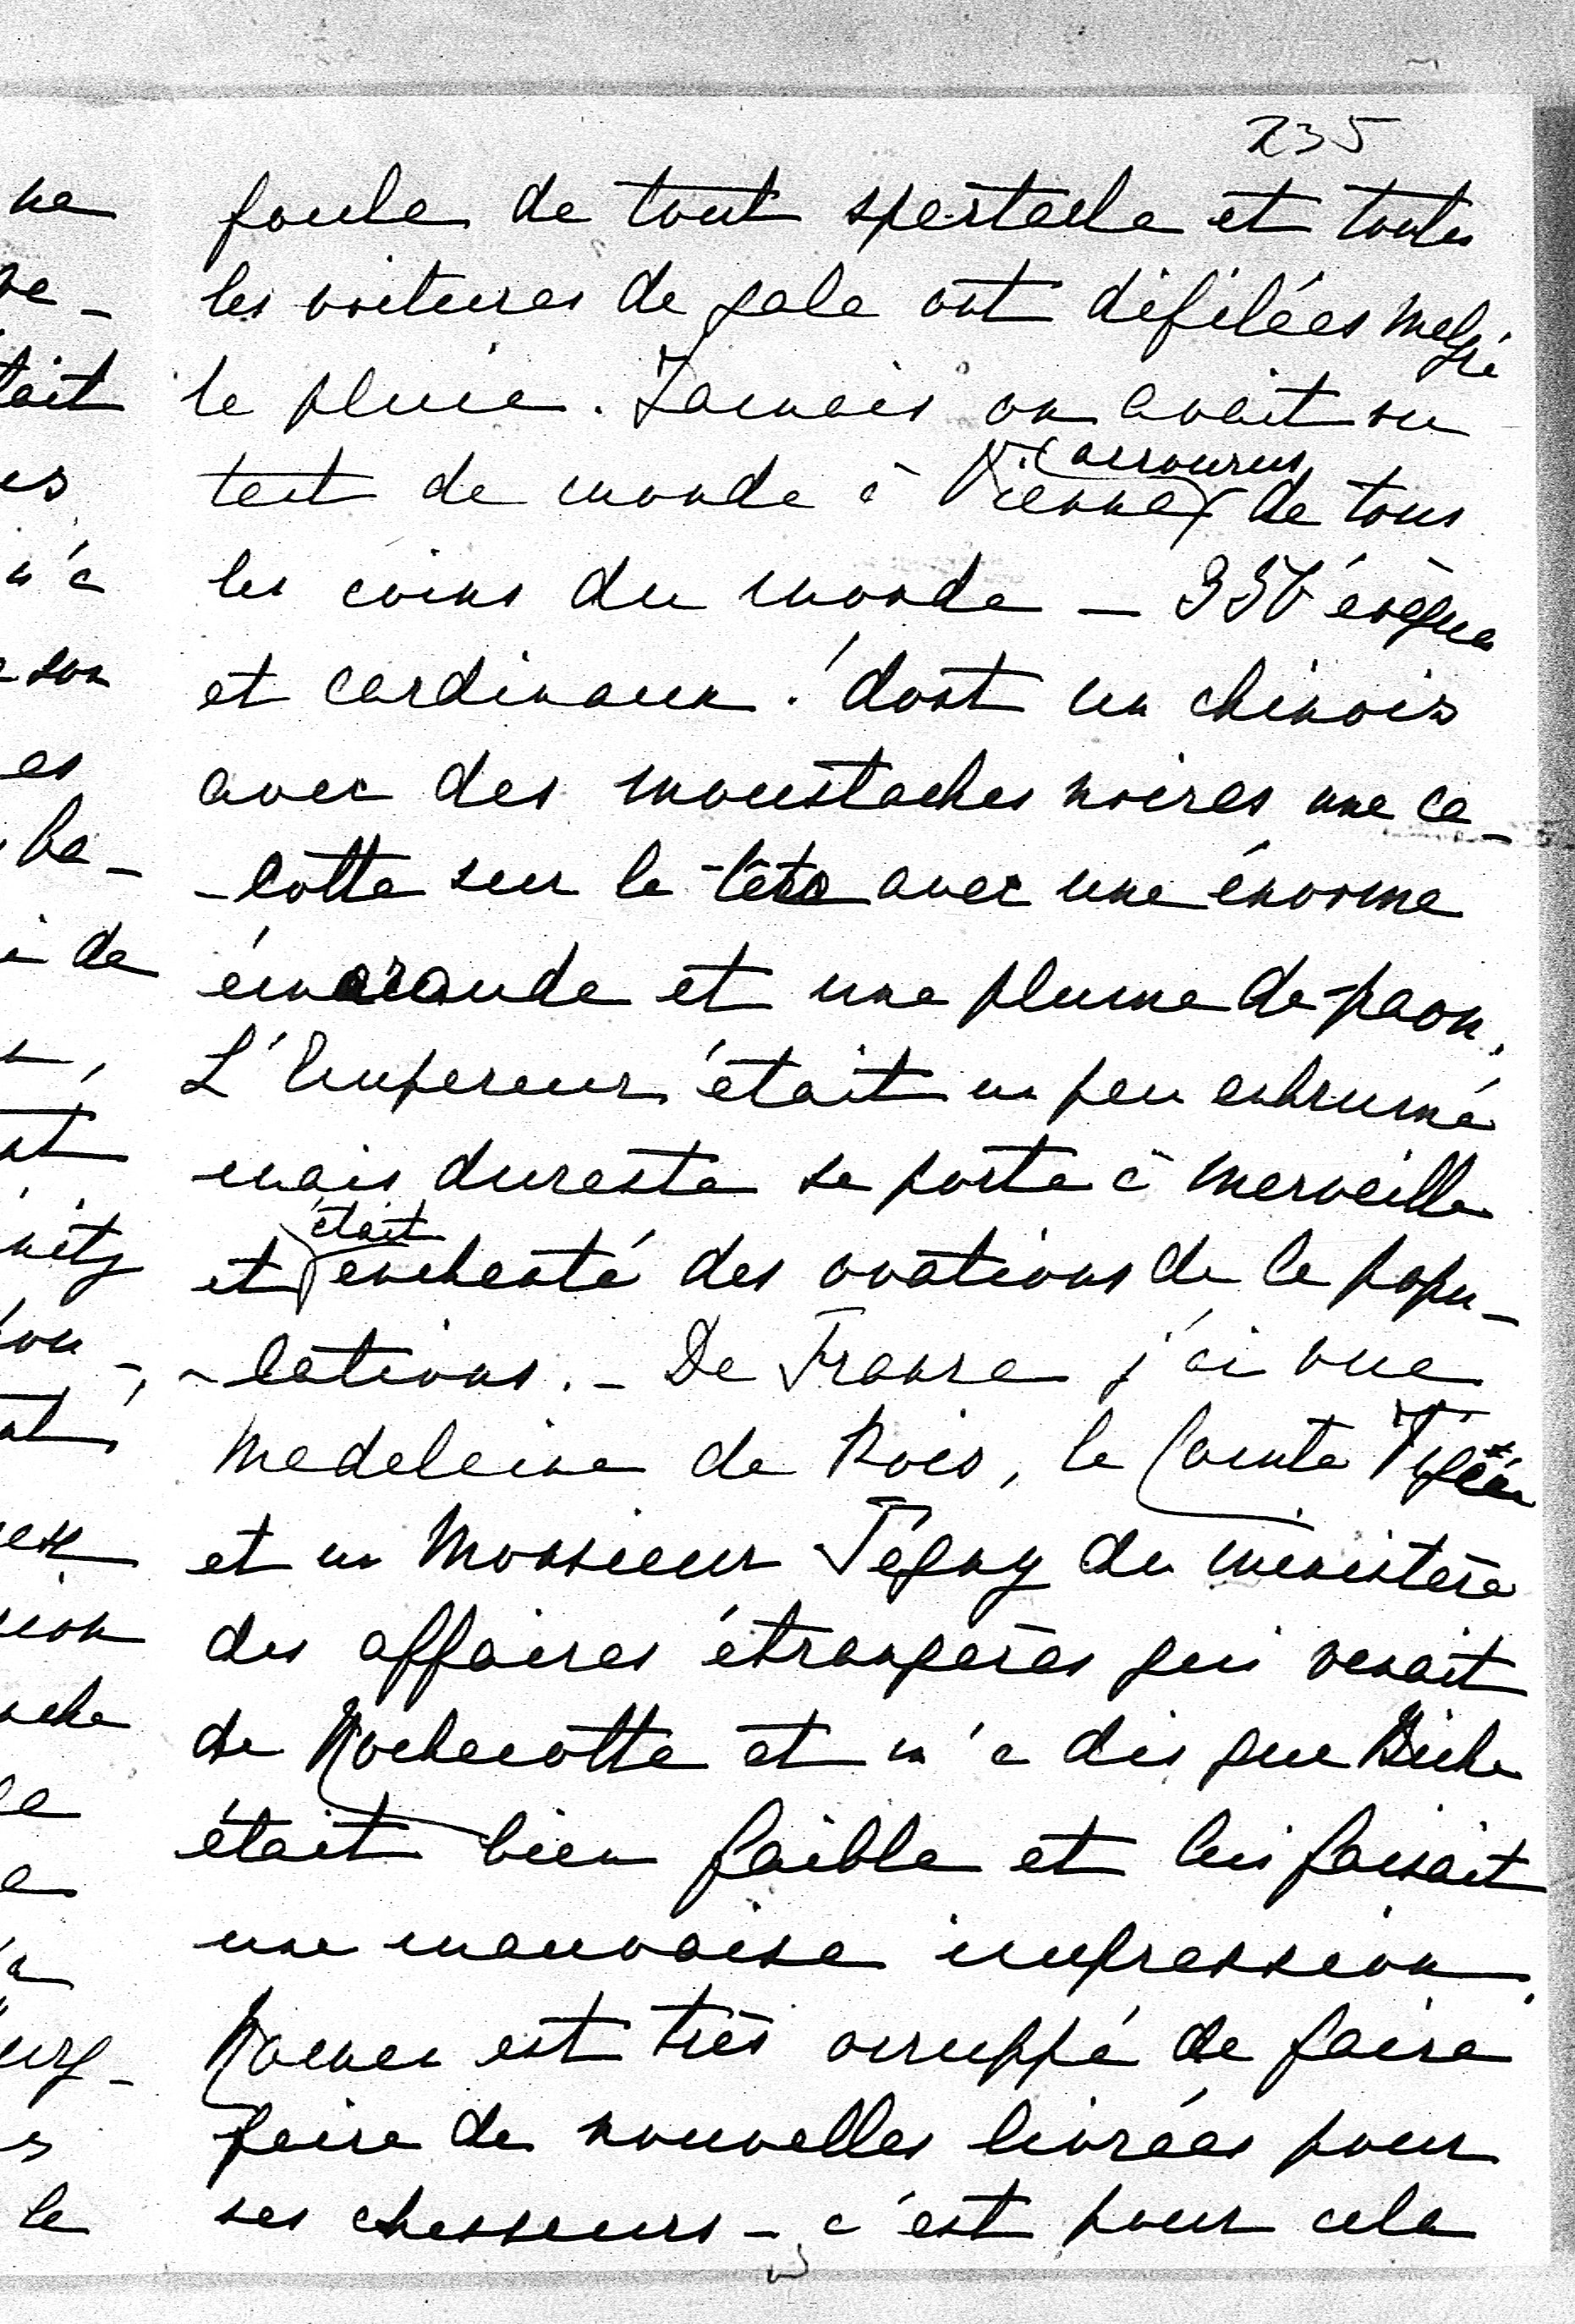 235
foule de tout spectacle et toutes
les voitures de gala ont défilées malgré
la pluie. Jamais on avait vu
tant de monde à Vienne accourus de tous
les coins du monde _ évêques
et cardinaux ! dont un chinois
avec des moustaches noires une ca_
_lotte sur la tête avec une énorme
émeraude et une plume de paon.
L'Empereur était un peu enhrumé
mais dureste se porte à merveille
et était enchanté des ovations de la popu_
_lations._ De France j'ai vue
Madeleine de le Comte
et un Monsieur du ministère
des affaires étrangères qui venait
de Rochecotte et m'a dis que Biche
était bien faible et lui faisait
une mauvaise impression.
est très occuppé de faire
faire de nouvelles livrées pour
ses chasseurs _ c'est pour cela